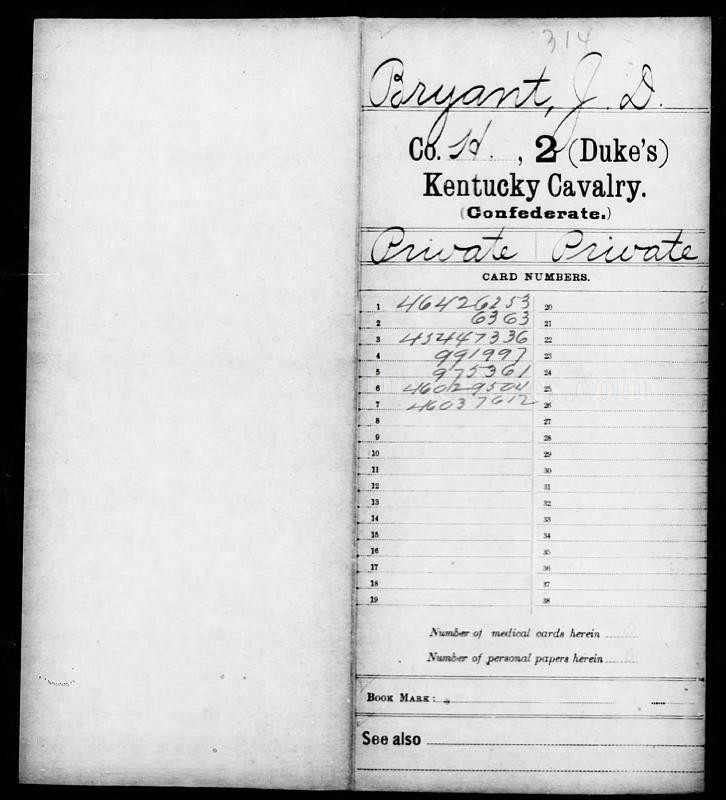 314
Bryant, J. D.
Co. H., 2 (Duke's)
Kentucky Cavalry.
(Confederate.)
Private | Private
CARD NUMBERS.
1 46426253 20
2 6363 21
3 45447336 22
4 991997 23
5 975361 24
6 46029504 25
7 46037612 26
8 27
9 28
10 29
11 30
12 31
13 32
14 33
15 34
16 35
17 36
18 37
19 38
Number of medical cards herein
Number of personal papers herein
BOOK MARK:
See also